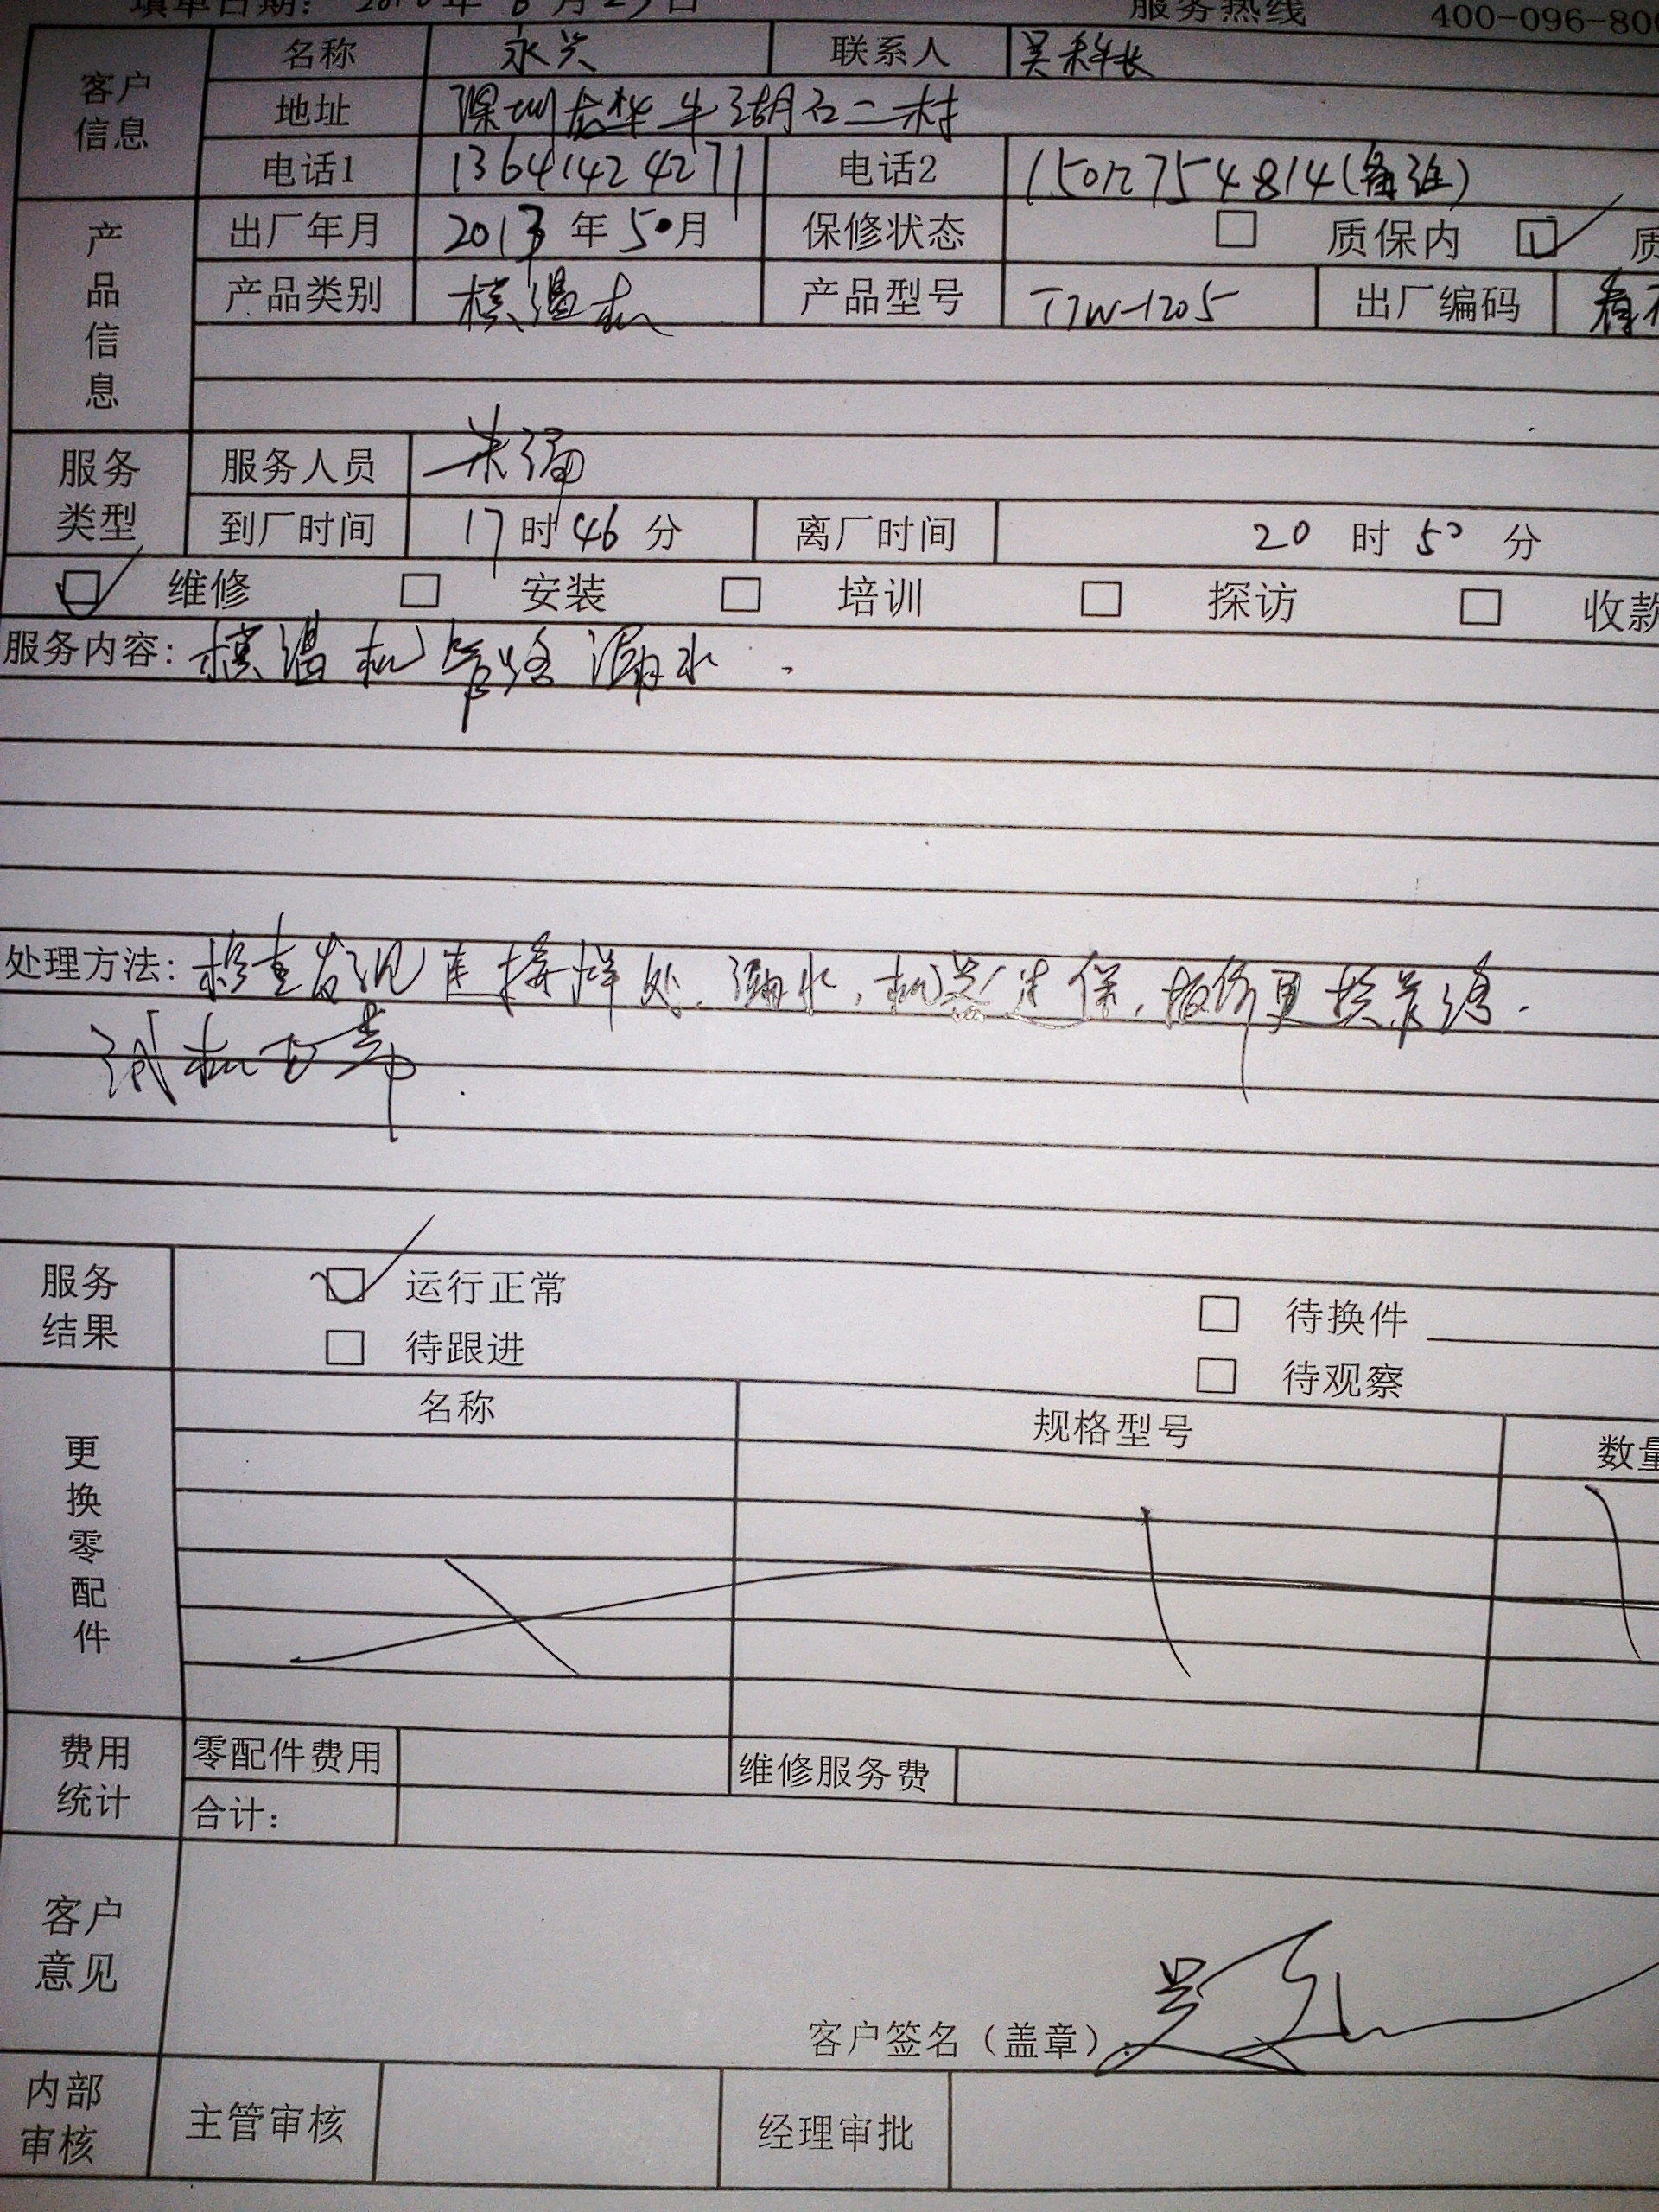 填单日期: 年 6 月 25 日 服务热线 400-096-80
客户信息 名称 永兴 联系人 吴科长
地址 深圳龙华牛湖石二村
电话1 13641424271 电话2 15012754814(备注)
产品信息 出厂年月 2013 年 5 月 保修状态 □ 质保内 □ 质
产品类别 模温机 产品型号 TTW-1205 出厂编码 看不
服务类型 服务人员 朱
到厂时间 17 时 46 分 离厂时间 20 时 50 分
□ 维修 □ 安装 □ 培训 □ 探访 □ 收款
服务内容: 模温机管路漏水.
处理方法: 检查发现连接焊处.漏水,机器过保,报价更换管路.
试机正常.
服务结果 □ 运行正常 □ 待换件
□ 待跟进 □ 待观察
更换零配件 名称 规格型号 数量
费用统计 零配件费用 维修服务费
合计:
客户意见
客户签名(盖章): 吴
内部审核 主管审核 经理审批